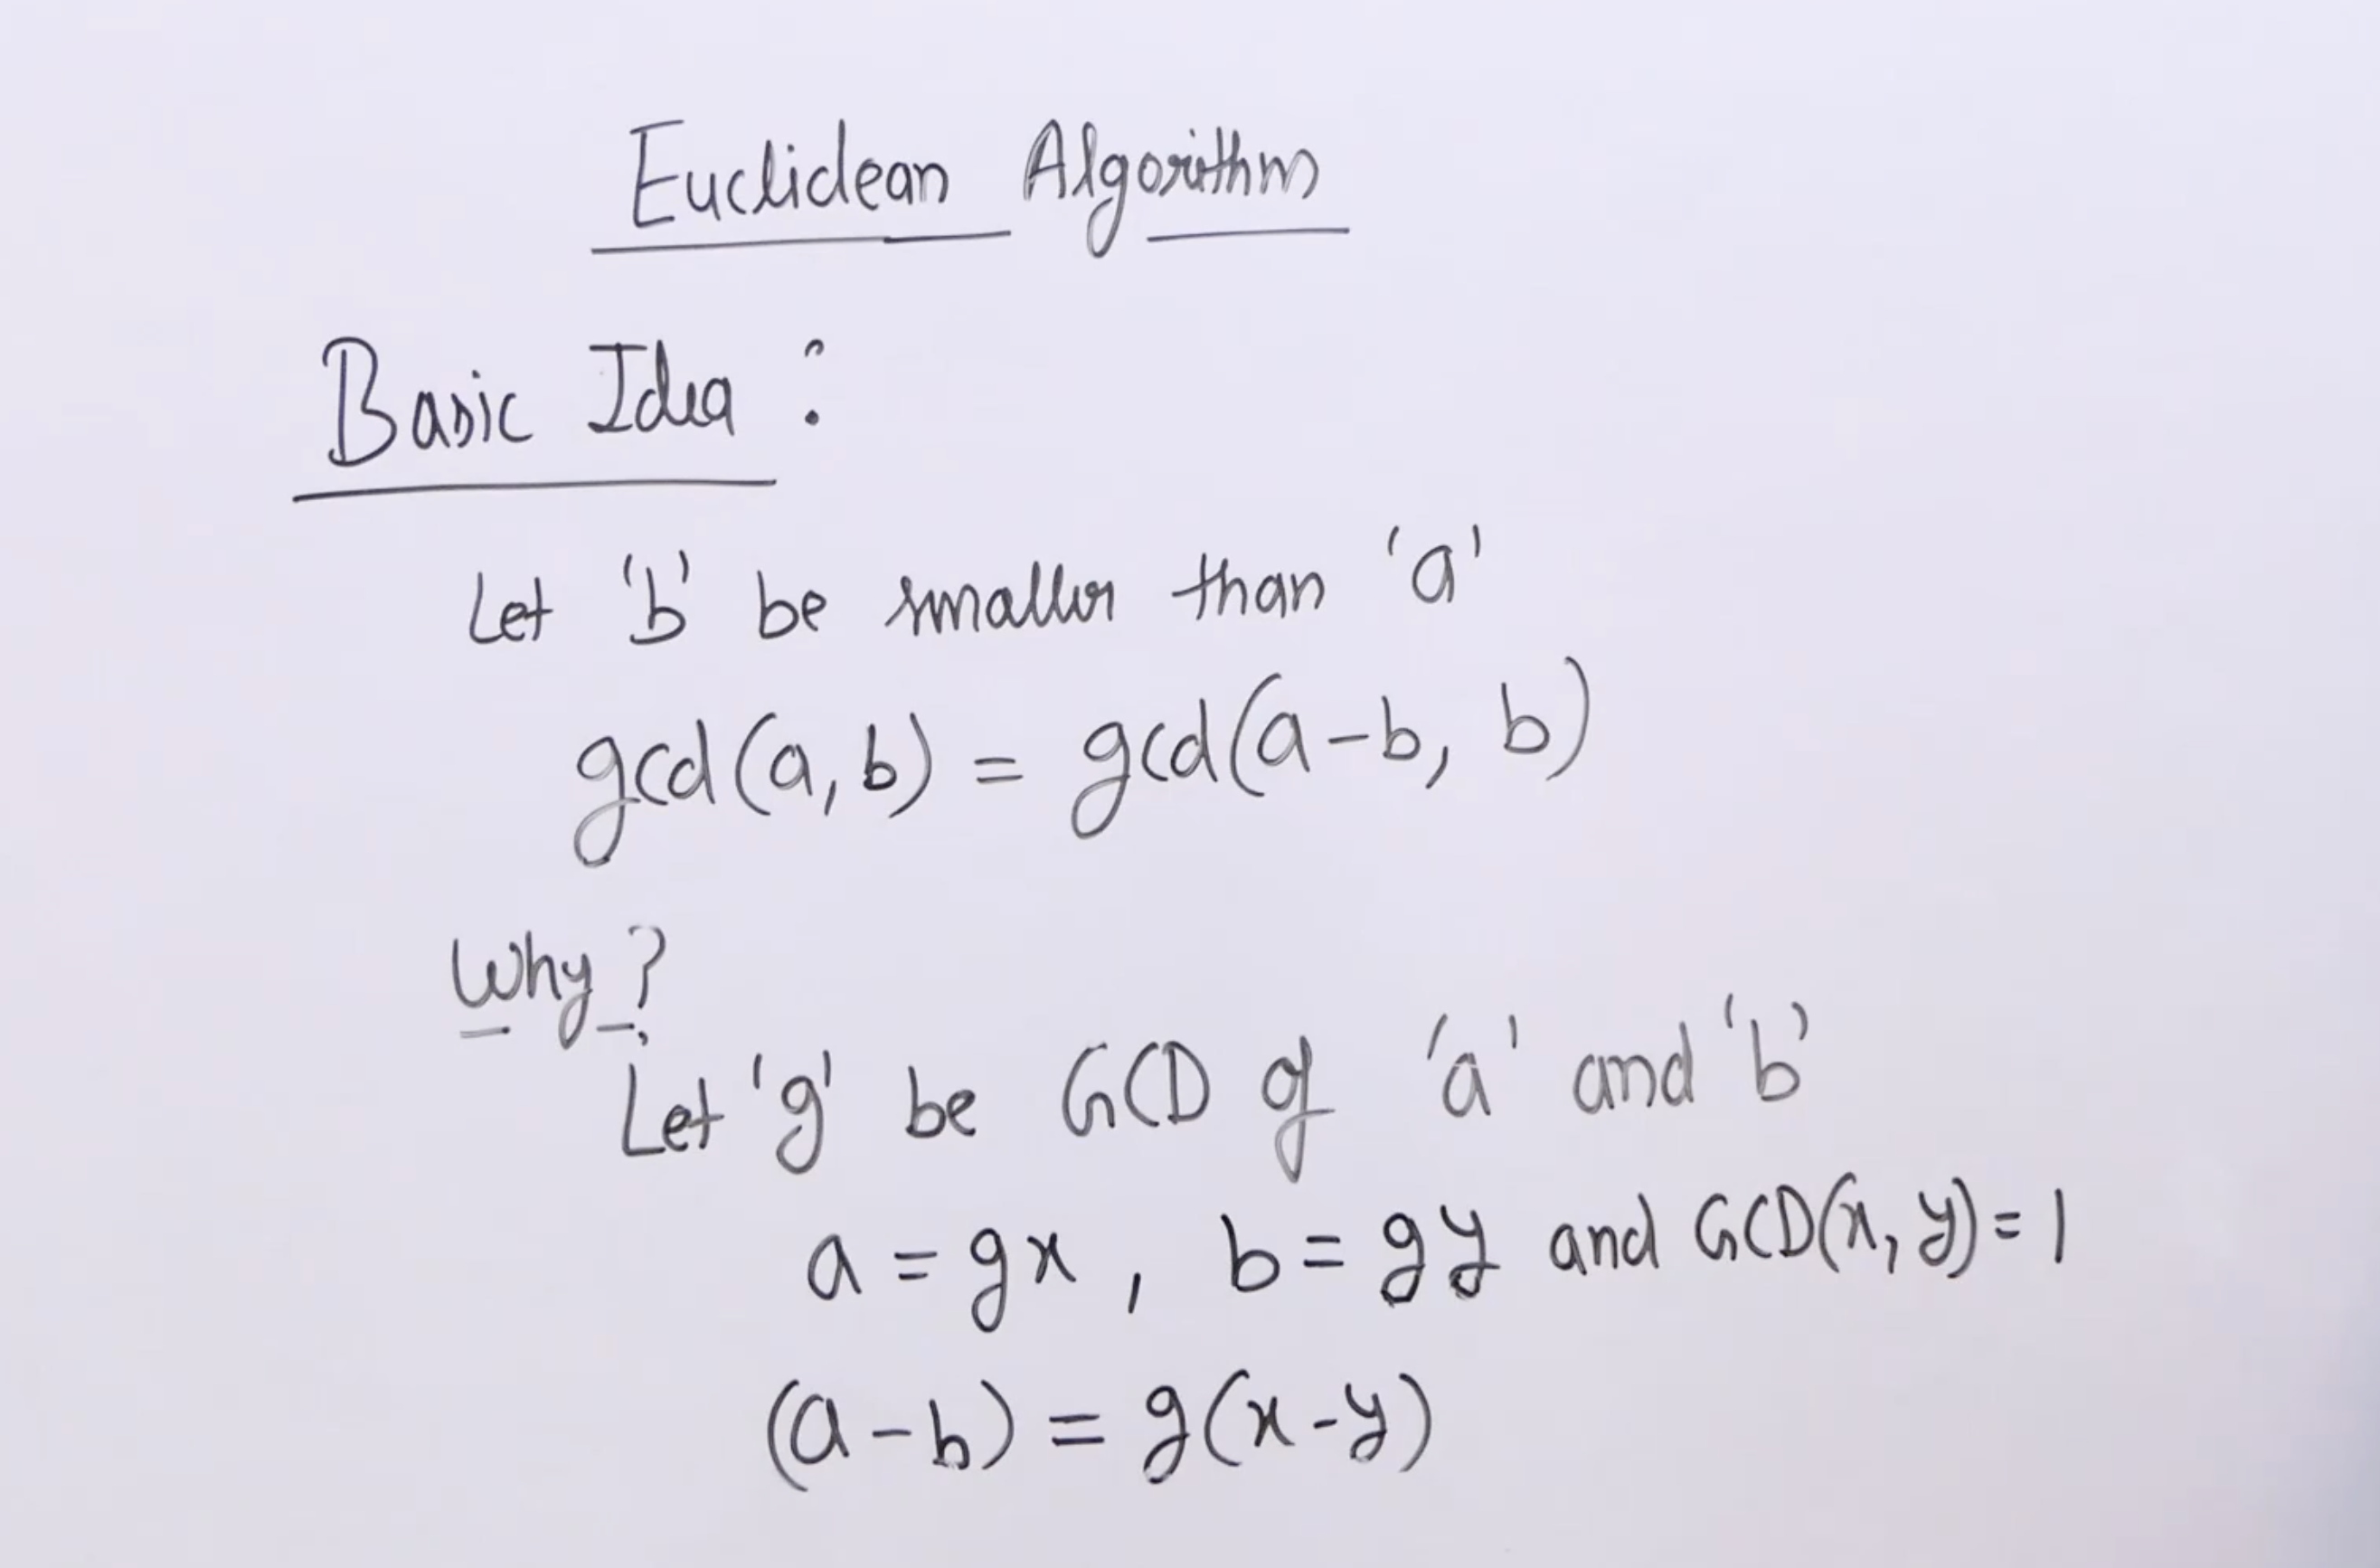 Euclidean Algorithm
Basic Idea :
Let 'b' be smaller than 'a'
gcd(a, b) = gcd(a-b, b)
Why?
Let 'g' be GCD of 'a' and 'b'
a = gx , b = gy and GCD(x, y) = 1
(a-b) = g(x-y)